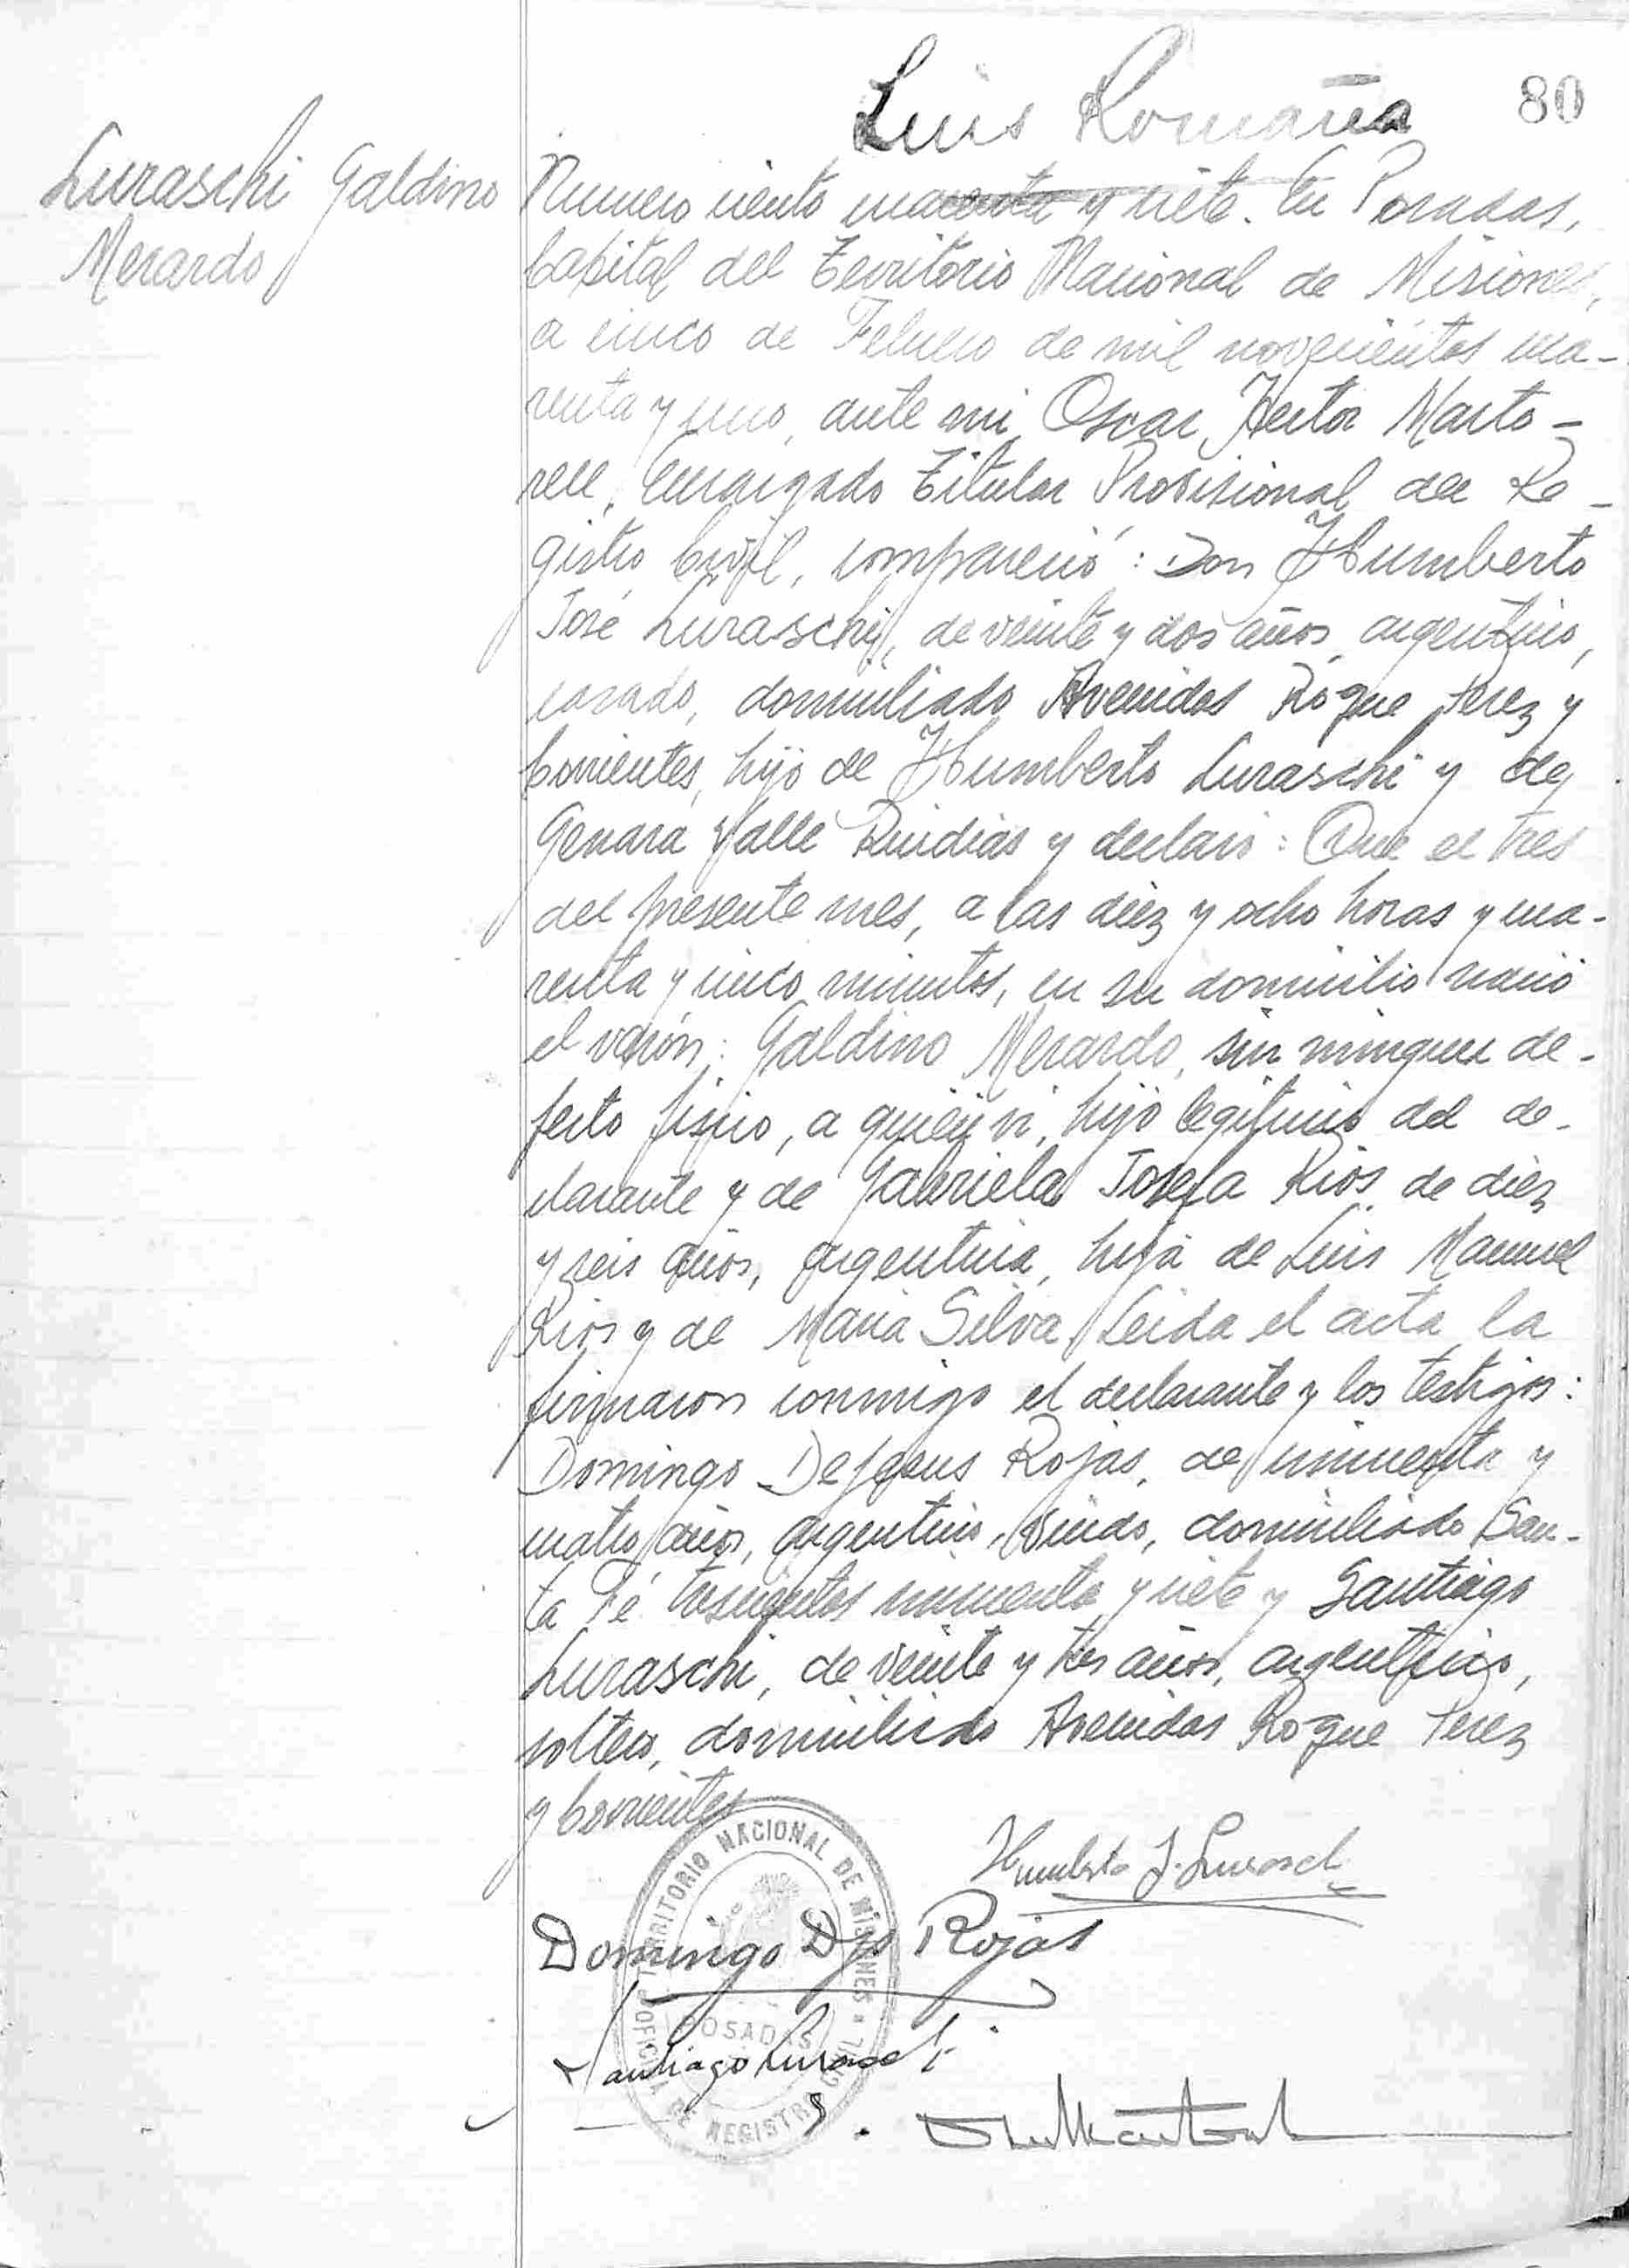 Luis Romaña
80
Luraschi Galdino
Merardo
Numero ciento cuarenta y siete. En Posadas,
Capital del Territorio Nacional de Misiones,
a cinco de Febrero de mil novecientos cua-
renta y uno, ante mi Oscar Hector Marto-
rell, Encargado Titular Provisional del Re-
gistro Civil, compareció: Don Humberto
José Luraschi, de veinte y dos años, argentino,
casado, domiciliado Avenidas Roque Perez y
Corrientes, hijo de Humberto Luraschi y de
Genara Valle Ruidias y declaró: Que el tres
del presente mes, a las diez y ocho horas y cua-
renta y cinco minutos, en su domicilio nació
el varón: Galdino Merardo, sin ningun de-
fecto fisico, a quién vi, hijo legitimo del de-
clarante y de Gabriela Josefa Rios, de diez
y seis años, argentina, hija de Luis Manuel
Rios y de Maria Silva. Leida el acta la
firmaron conmigo el declarante y los testigos:
Domingo DeJesus Rojas, de cincuenta y
cuatro años, argentino, viudo, domiciliado San-
ta Fé trescientos cincuenta y siete y Santiago
Luraschi, de veinte y tres años, argentino,
soltero, domiciliado Avenidas Roque Perez
y Corrientes
Humberto J. Luraschi
Domingo Djs Rojas
Santiago Luraschi
TERRITORIO NACIONAL DE MISIONES
POSADAS
OFICINA DE REGISTRO CIVIL